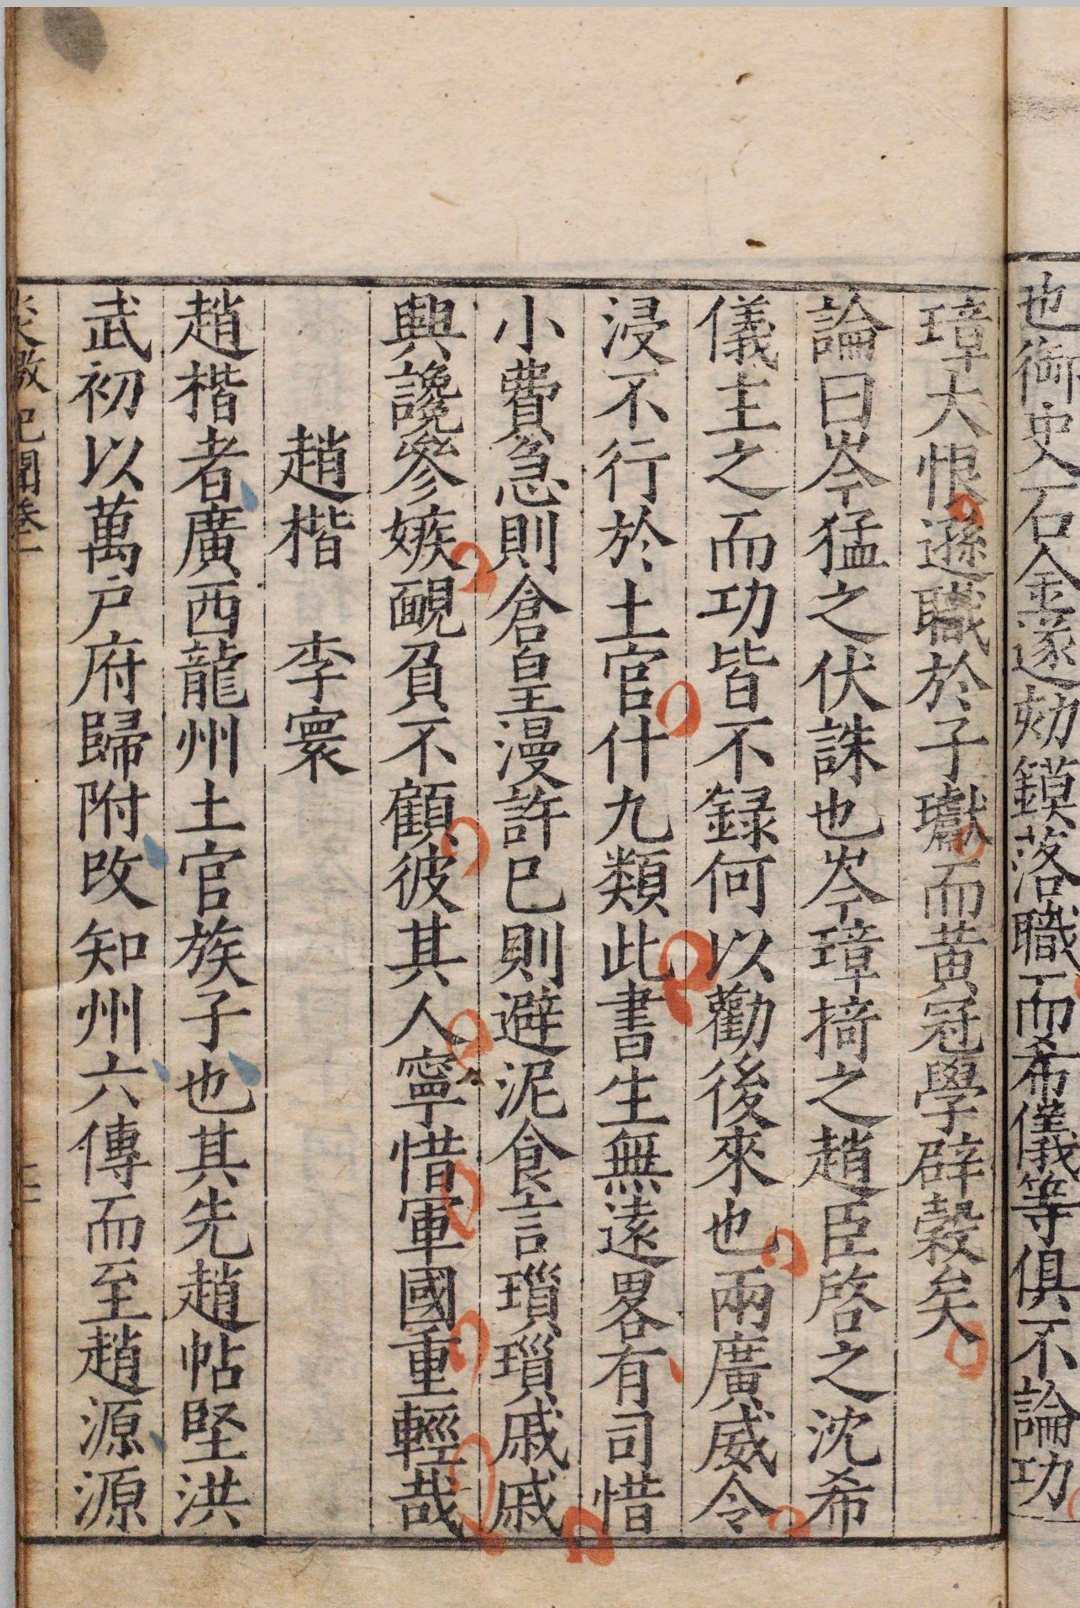 也御史石金遂劾鏌落職而希儀等俱不論功
璋大恨遜職於子瓛而黃冠學辟穀矣
論曰岑猛之伏誅也岑璋掎之趙臣啓之沈希
儀主之而功皆不録何以勸後來也兩廣威令
浸不行於土官什九類此書生無遠畧有司惜
小費急則倉皇漫許已則避泥食言瑣瑣戚戚
興讒參嫉靦負不顧彼其人寧惜軍國重輕哉
趙楷　李寰
趙楷者廣西龍州土官族子也其先趙帖堅洪
武初以萬戶府歸附改知州六傳而至趙源源
炎徼紀聞卷一